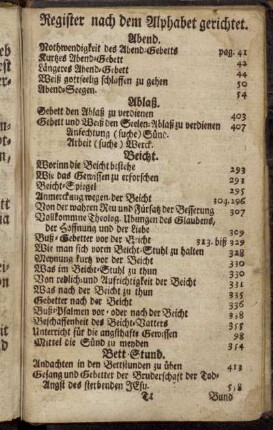 Register nach dem Alphabet gerichtet.
Abend.
Nothwendigkeit des Abend-Gebetts pag. 41
Kurtzes Abend-Gebett 42
Längeres Abend-Gebett 44
Weiß gottselig schlaffen zu gehen 50
Abend-Seegen. 54
Ablaß.
Gebett den Ablaß zu verdienen 403
Gebett und Weiß den Seelen-Ablaß zu verdienen 407
Anfechtung (suche) Sünd.
Arbeit (suche) Werck.
Beicht.
Worinn die Beicht bestehe 293
Wie das Gewissen zu erforschen 291
Beicht-Spiegel 295
Anmerckung wegen der Beicht 104. 196
Von der wahren Reu und Fürsatz der Besserung 307
Vollkommne Theolog. Übungen des Glaubens,
der Hoffnung und der Liebe 309
Buß-Gebetter vor der Beicht 313. biß 329
Wie man sich vorm Beicht-Stuhl zu halten 328
Meynung kurtz vor der Beicht 330
Was im Beicht-Stuhl zu thun 330
Von redlich- und Aufrichtigkeit der Beicht 331
Was nach der Beicht zu thun 335
Gebetter nach der Beicht 336
Buß-Psalmen vor- oder nach der Beicht 338
Beschaffenheit des Beicht-Vatters 355
Unterricht für die angsthafte Gewissen 98
Mittel die Sünd zu meyden 354
Bett-Stund.
Andachten in den Bettstunden zu üben 413
Gesang und Gebetter der Bruderschaft der Tod-
Angst des sterbenden JEsu. 518
Tt Bund